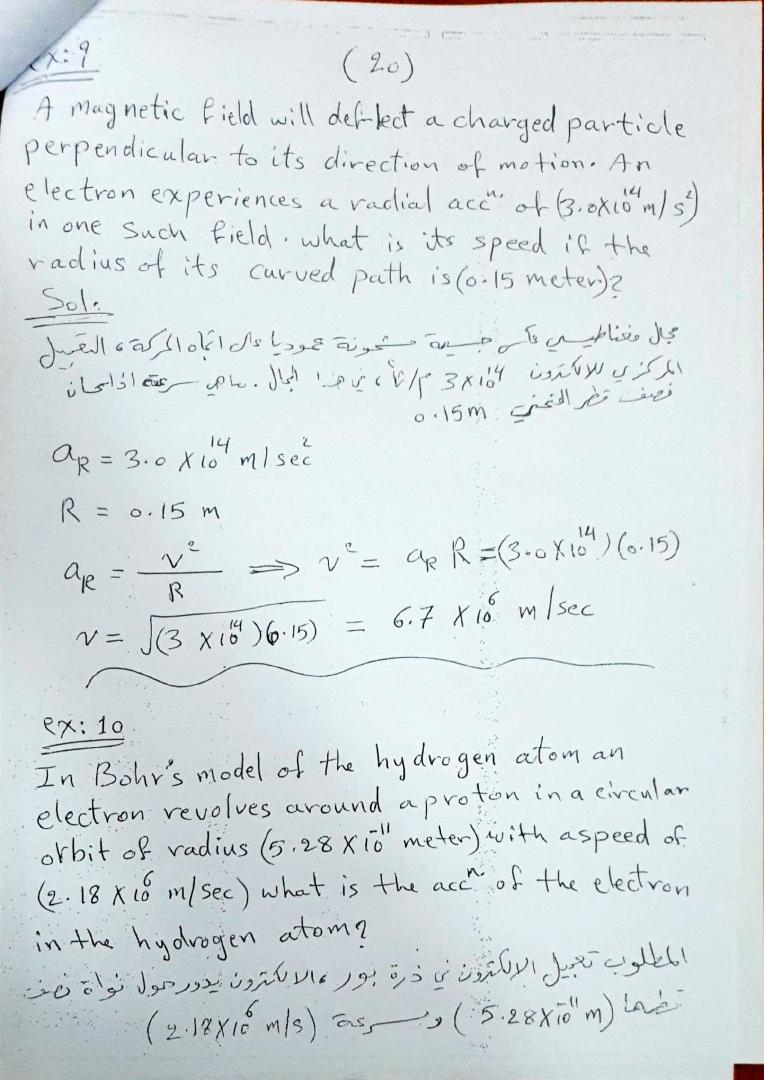 ex: 9
(20)
A magnetic field will deflect a charged particle
perpendicular to its direction of motion. An
electron experiences a radial accⁿ. of (3.0x10¹⁴ m/s²)
in one such field. what is its speed if the
radius of its curved path is (0.15 meter)?
Sol.
مجال مغناطيسي جسيمة مشحونة عموديا على اتجاه الحركة، التعجيل
المركزي للالكترون 3x10¹⁴ م/ثا² في هذا المجال. ماهي سرعته اذا كان
نصف قطر المنحني 0.15m
a_R = 3.0 x 10¹⁴ m/sec²
R = 0.15 m
a_R = v²/R ⟹ v² = a_R R = (3.0x10¹⁴)(0.15)
v = √(3 x10¹⁴)(0.15) = 6.7 x 10⁶ m/sec
ex: 10
In Bohr's model of the hydrogen atom an
electron revolves around a proton in a circular
orbit of radius (5.28 x 10⁻¹¹ meter) with a speed of
(2.18 x 10⁶ m/sec) what is the accⁿ of the electron
in the hydrogen atom?
المطلوب تعجيل الالكترون في ذرة بور، الالكترون يدور حول نواة نصف
قطرها (5.28x10⁻¹¹ m) وسرعة (2.18x10⁶ m/s)